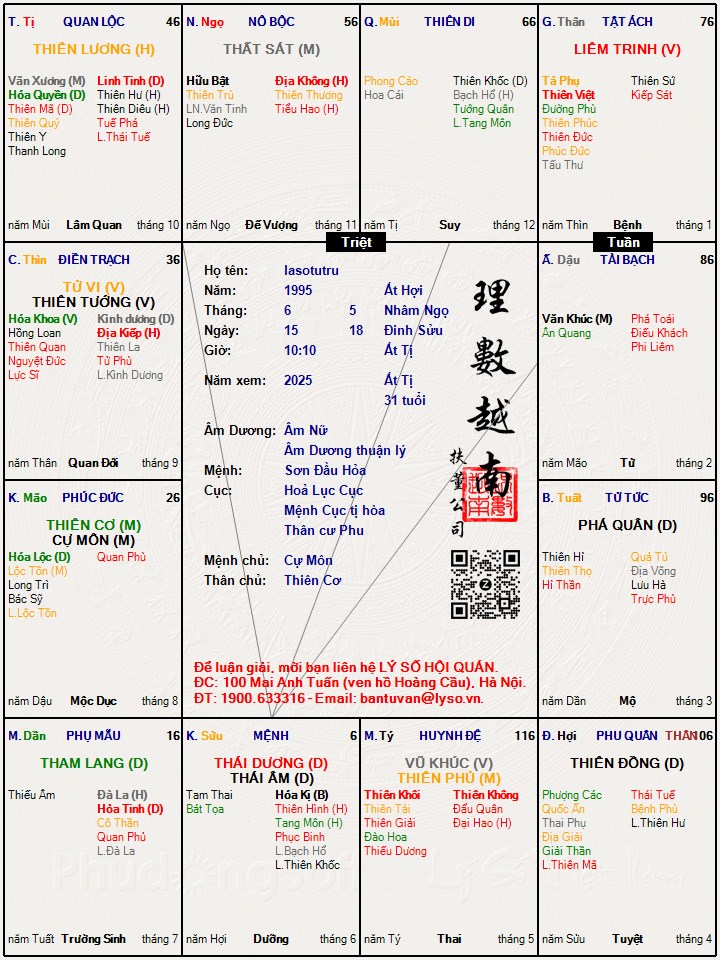 T. Tị QUAN LỘC 46
THIÊN LƯƠNG (H)
Văn Xương (M) Linh Tinh (D)
Hóa Quyền (D) Thiên Hư (H)
Thiên Mã (D) Thiên Diêu (H)
Thiên Quý Tuế Phá
Thiên Y L.Thái Tuế
Thanh Long
năm Mùi Lâm Quan tháng 10
N. Ngọ NÔ BỘC 56
THẤT SÁT (M)
Hữu Bật Địa Không (H)
Thiên Trù Thiên Thương
LN.Văn Tinh Tiểu Hao (H)
Long Đức
năm Ngọ Đế Vượng tháng 11
Q. Mùi THIÊN DI 66
Phong Cáo Thiên Khốc (D)
Hoa Cái Bạch Hổ (H)
Tướng Quân
L.Tang Môn
năm Tị Suy tháng 12
G. Thân TẬT ÁCH 76
LIÊM TRINH (V)
Tả Phụ Thiên Sứ
Thiên Việt Kiếp Sát
Đường Phù
Thiên Phúc
Thiên Đức
Phúc Đức
Tấu Thư
năm Thìn Bệnh tháng 1
Triệt
Tuần
C. Thìn ĐIỀN TRẠCH 36
TỬ VI (V)
THIÊN TƯỚNG (V)
Hóa Khoa (V) Kình dương (D)
Hồng Loan Địa Kiếp (H)
Thiên Quan Thiên La
Nguyệt Đức Tử Phù
Lực Sĩ L.Kình Dương
năm Thân Quan Đới tháng 9
Họ tên: lasotutru
Năm: 1995 Ất Hợi
Tháng: 6 5 Nhâm Ngọ
Ngày: 15 18 Đinh Sửu
Giờ: 10:10 Ất Tị
Năm xem: 2025 Ất Tị
31 tuổi
Âm Dương: Âm Nữ
Âm Dương thuận lý
Mệnh: Sơn Đầu Hỏa
Cục: Hoả Lục Cục
Mệnh Cục tị hòa
Thân cư Phu
Mệnh chủ: Cự Môn
Thân chủ: Thiên Cơ
理數越南
扶董公司
Để luận giải, mời bạn liên hệ LÝ SỐ HỘI QUÁN.
ĐC: 100 Mai Anh Tuấn (ven hồ Hoàng Cầu), Hà Nội.
ĐT: 1900.633316 - Email: bantuvan@lyso.vn.
Ấ. Dậu TÀI BẠCH 86
Văn Khúc (M) Phá Toái
Ân Quang Điếu Khách
Phi Liêm
năm Mão Tử tháng 2
K. Mão PHÚC ĐỨC 26
THIÊN CƠ (M)
CỰ MÔN (M)
Hóa Lộc (D) Quan Phù
Lộc Tồn (M)
Long Trì
Bác Sỹ
L.Lộc Tồn
năm Dậu Mộc Dục tháng 8
B. Tuất TỬ TỨC 96
PHÁ QUÂN (D)
Thiên Hỉ Quả Tú
Thiên Thọ Địa Võng
Hỉ Thần Lưu Hà
Trực Phù
năm Dần Mộ tháng 3
M. Dần PHỤ MẪU 16
THAM LANG (D)
Thiếu Âm Đà La (H)
Hỏa Tinh (D)
Cô Thần
Quan Phủ
L.Đà La
năm Tuất Trường Sinh tháng 7
K. Sửu MỆNH 6
THÁI DƯƠNG (D)
THÁI ÂM (D)
Tam Thai Hóa Kị (B)
Bát Tọa Thiên Hình (H)
Tang Môn (H)
Phục Binh
L.Bạch Hổ
L.Thiên Khốc
năm Hợi Dưỡng tháng 6
M. Tý HUYNH ĐỆ 116
VŨ KHÚC (V)
THIÊN PHỦ (M)
Thiên Khôi Thiên Không
Thiên Tài Đẩu Quân
Thiên Giải Đại Hao (H)
Đào Hoa
Thiếu Dương
năm Tý Thai tháng 5
Đ. Hợi PHU QUÂN THÂN 106
THIÊN ĐỒNG (D)
Phượng Các Thái Tuế
Quốc Ấn Bệnh Phù
Thai Phụ L.Thiên Hư
Địa Giải
Giải Thần
L.Thiên Mã
năm Sửu Tuyệt tháng 4